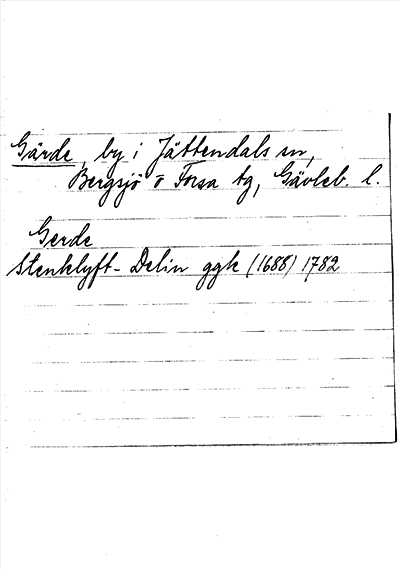 Gärde, by i Jättendals sn,
Bergsjö o Forsa tg, Gävleb. l.
Gerde
Stenklyft-Delin ggk (1688) 1782